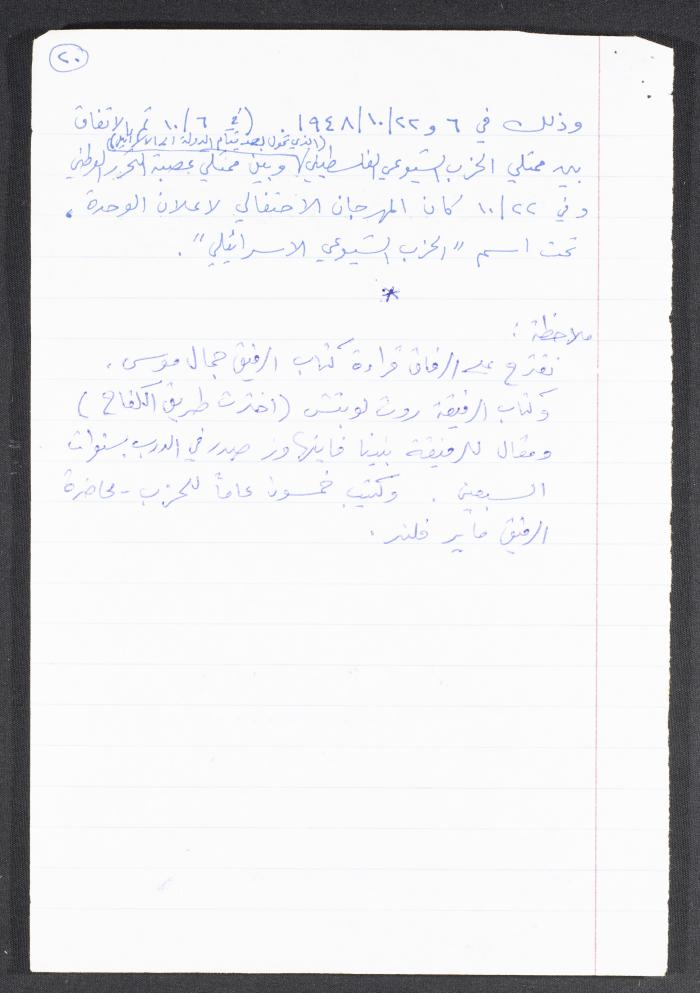 ٢٠
وذلك في ٦ و ٢٢/١٠/١٩٤٨. (في ١٠/٦ تم الاتفاق
(الذي تحول بعد قيام الدولة الى الاسرائيلي)
بين ممثلي الحزب الشيوعي الفلسطيني وبين ممثلي عصبة التحرر الوطني
وفي ١٠/٢٢ كان المهرجان الاحتفالي لاعلان الوحدة،
تحت اسم "الحزب الشيوعي الاسرائيلي".
*
ملاحظة:
نقترح على الرفاق قراءة كتاب الرفيق جمال موسى.
وكتاب الرفيقة روت لوبتش (اخترت طريق الكفاح)
ومقال للرفيقة بنينا فاينهاوز صدر في الدرب بسنوات
السبعين. وكتيب خمسون عاماً للحزب - محاضرة
الرفيق مائير فلنر.